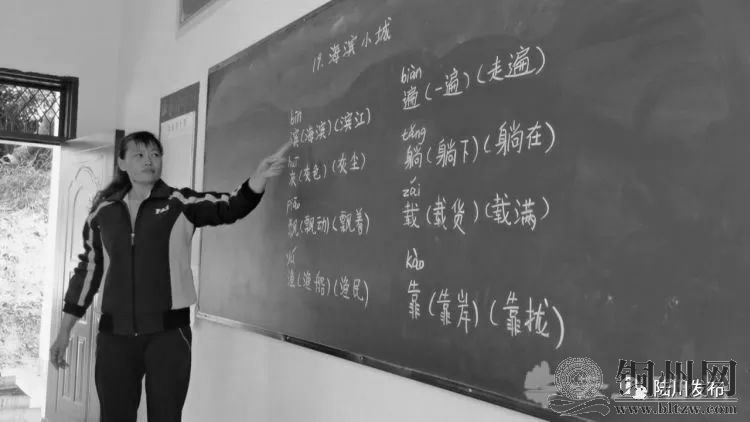 19. 海滨小城
bīn
滨(海滨)(滨江)
huī
灰(灰色)(灰尘)
piāo
飘(飘动)(飘着)
yú
渔(渔船)(渔民)
biàn
遍(一遍)(走遍)
tǎng
躺(躺下)(躺在)
zài
载(载货)(载满)
kào
靠(靠岸)(靠拢)
铜州网
陆川发布
www.bltzw.com